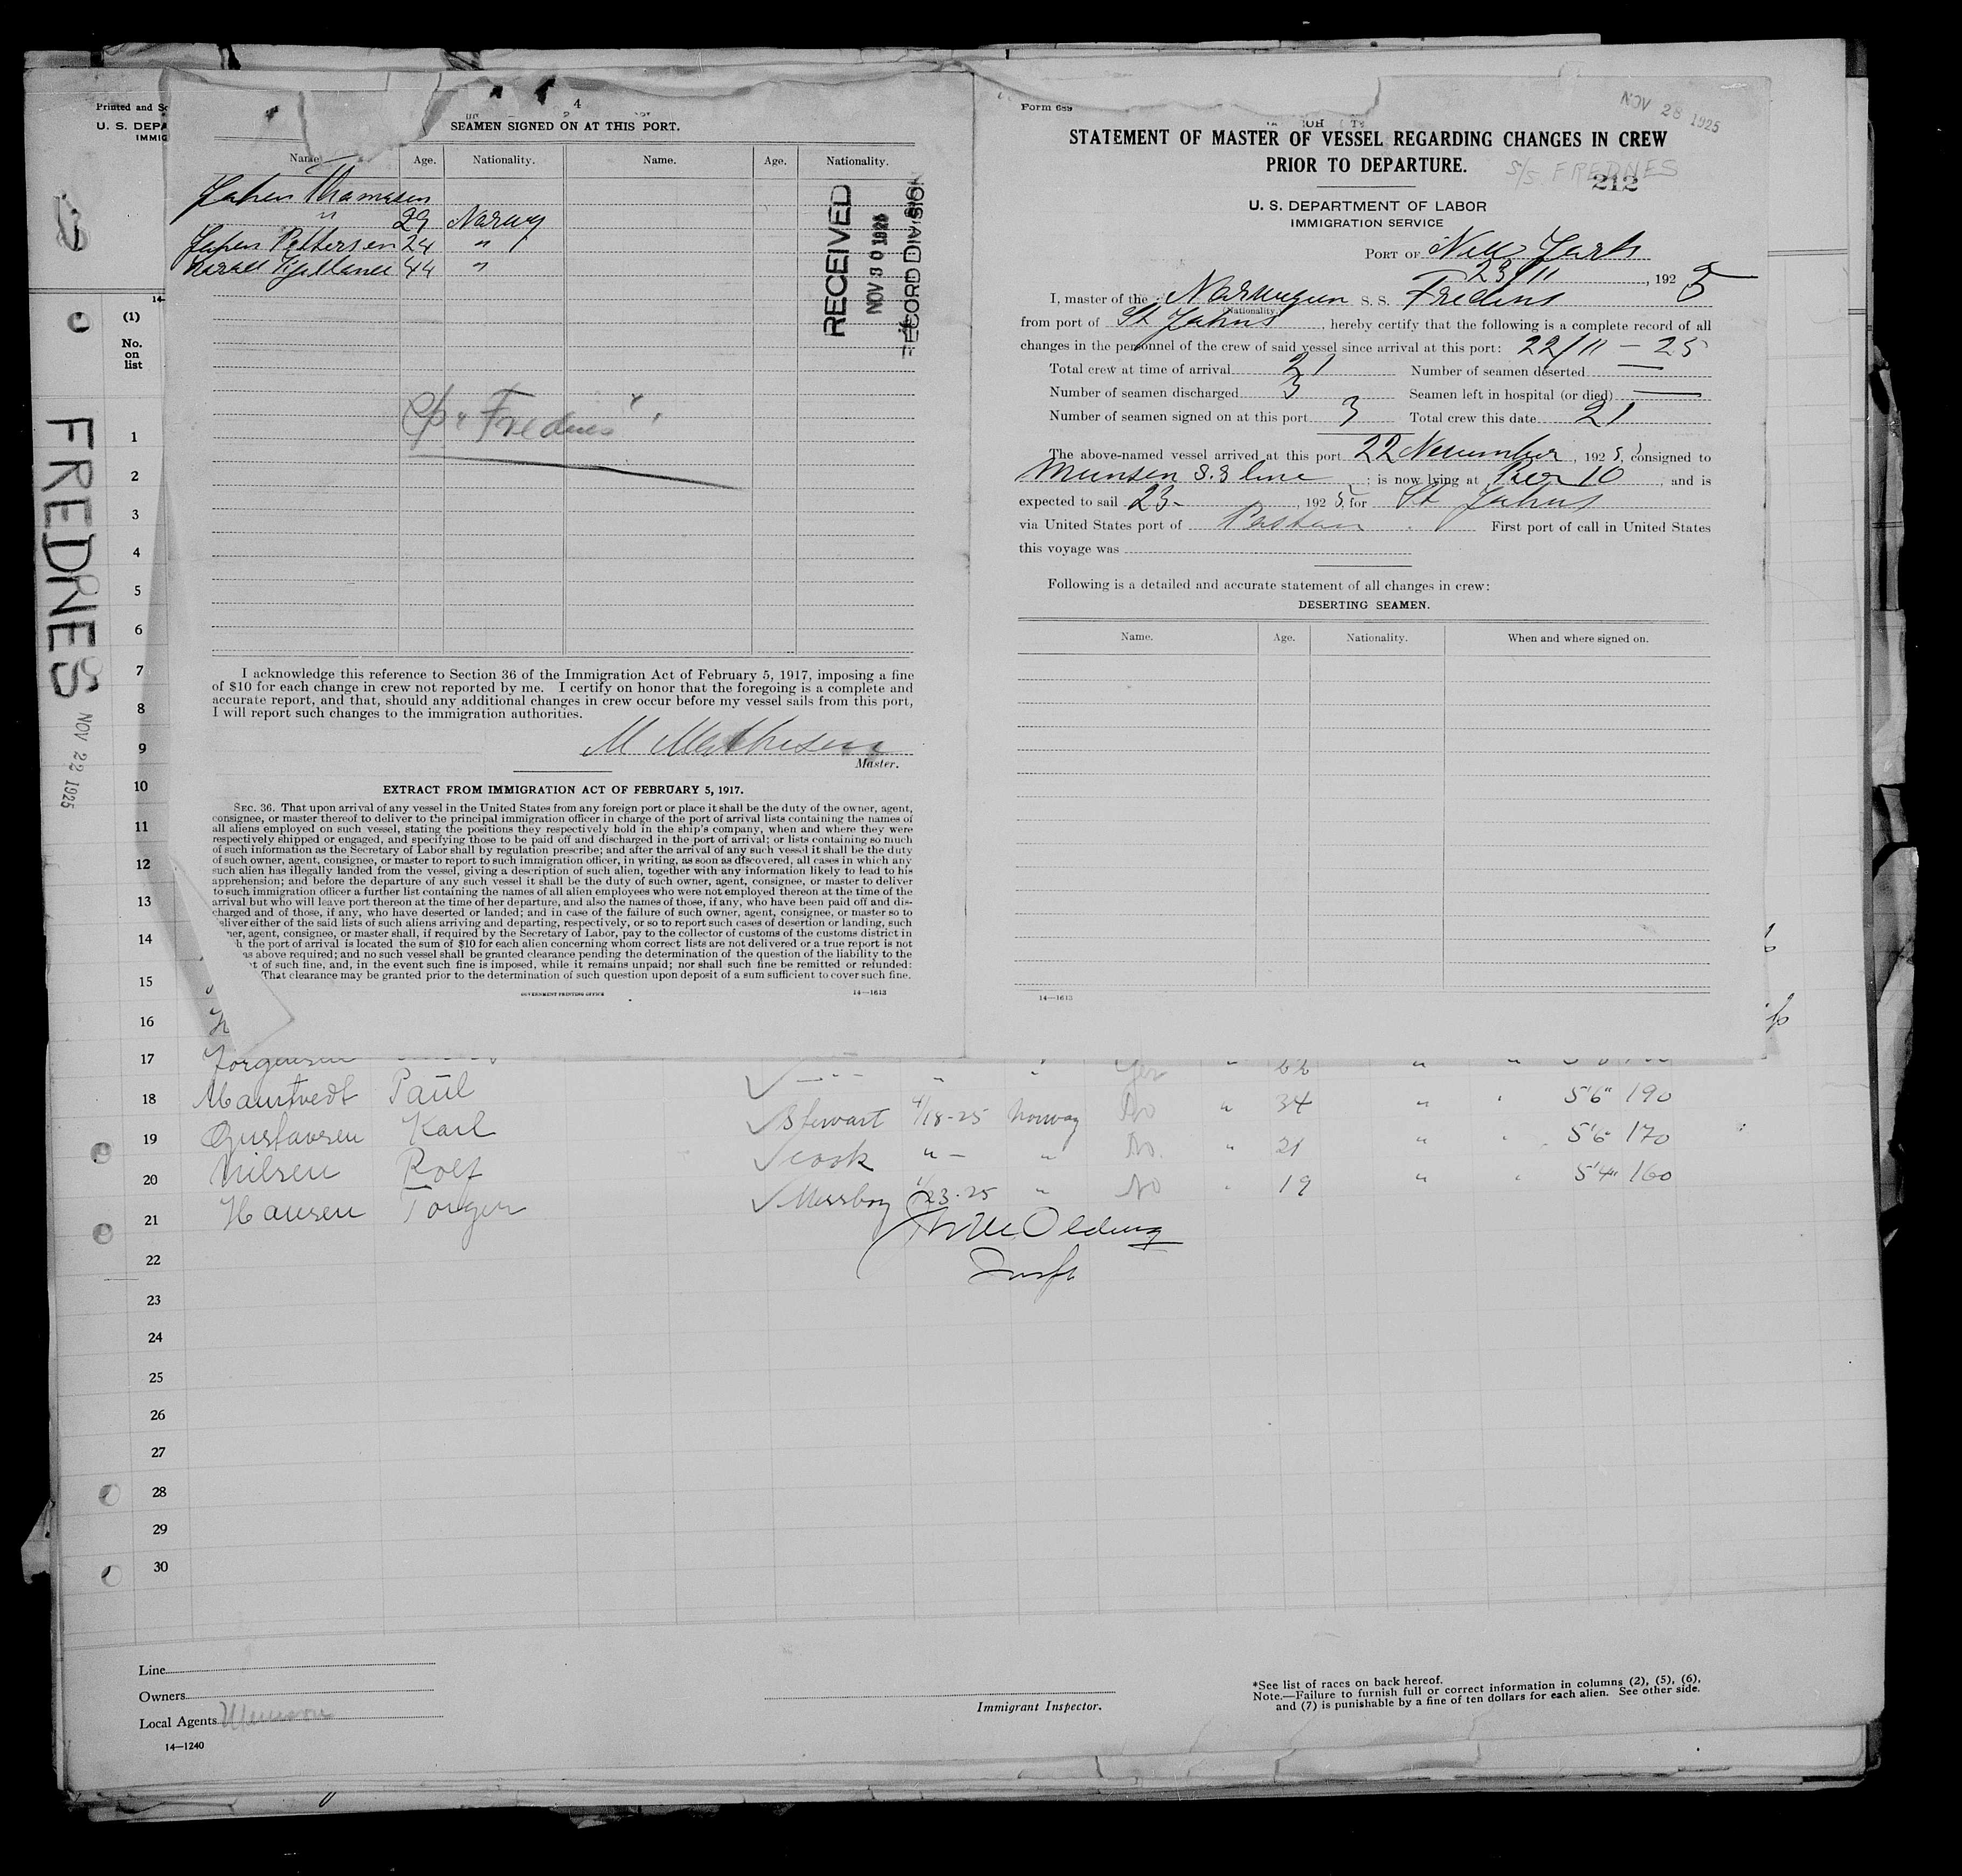 Printed and
U. S. DEPA
IMMIG
14-
(1)
No.
on
list
FREDNES
NOV 22 1925
4
SEAMEN SIGNED ON AT THIS PORT.
Name Age. Nationality. Name. Age. Nationality.
Johan Thomassen
" 29 Norway
Petersen 24 "
44 "
RECEIVED
NOV 30 1925
RECORD DIVISION
"Frednes"
I acknowledge this reference to Section 36 of the Immigration Act of February 5, 1917, imposing a fine
of $10 for each change in crew not reported by me. I certify on honor that the foregoing is a complete and
accurate report, and that, should any additional changes in crew occur before my vessel sails from this port,
I will report such changes to the immigration authorities.
M Mathisen
Master.
EXTRACT FROM IMMIGRATION ACT OF FEBRUARY 5, 1917.
SEC. 36. That upon arrival of any vessel in the United States from any foreign port or place it shall be the duty of the owner, agent,
consignee, or master thereof to deliver to the principal immigration officer in charge of the port of arrival lists containing the names of
all aliens employed on such vessel, stating the positions they respectively hold in the ship's company, when and where they were
respectively shipped or engaged, and specifying those to be paid off and discharged in the port of arrival; or lists containing so much
of such information as the Secretary of Labor shall by regulation prescribe; and after the arrival of any such vessel it shall be the duty
of such owner, agent, consignee, or master to report to such immigration officer, in writing, as soon as discovered, all cases in which any
such alien has illegally landed from the vessel, giving a description of such alien, together with any information likely to lead to his
apprehension; and before the departure of any such vessel it shall be the duty of such owner, agent, consignee, or master to deliver
to such immigration officer a further list containing the names of all alien employees who were not employed thereon at the time of the
arrival but who will leave port thereon at the time of her departure, and also the names of those, if any, who have been paid off and dis-
charged and of those, if any, who have deserted or landed; and in case of the failure of such owner, agent, consignee, or master so to
eliver either of the said lists of such aliens arriving and departing, respectively, or so to report such cases of desertion or landing, such
ner, agent, consignee, or master shall, if required by the Secretary of Labor, pay to the collector of customs of the customs district in
h the port of arrival is located the sum of $10 for each alien concerning whom correct lists are not delivered or a true report is not
as above required; and no such vessel shall be granted clearance pending the determination of the question of the liability to the
t of such fine, and, in the event such fine is imposed, while it remains unpaid; nor shall such fine be remitted or refunded:
That clearance may be granted prior to the determination of such question upon deposit of a sum sufficient to cover such fine.
GOVERNMENT PRINTING OFFICE 14—1613
Form 689
NOV 28 1925
STATEMENT OF MASTER OF VESSEL REGARDING CHANGES IN CREW
PRIOR TO DEPARTURE.
S/S FREDNES
212
U. S. DEPARTMENT OF LABOR
IMMIGRATION SERVICE
PORT OF New York
23/11, 1925
I, master of the Norwegian S. S. Frednes
(Nationality)
from port of St Johns, hereby certify that the following is a complete record of all
changes in the personnel of the crew of said vessel since arrival at this port: 22/11 - 25
Total crew at time of arrival 21 Number of seamen deserted —
Number of seamen discharged 3 Seamen left in hospital (or died) —
Number of seamen signed on at this port 3 Total crew this date 21
The above-named vessel arrived at this port 22 November, 1925, consigned to
Munson S.S line; is now lying at Pier 10, and is
expected to sail 23-, 1925, for St Johns
via United States port of Boston. First port of call in United States
this voyage was
Following is a detailed and accurate statement of all changes in crew:
DESERTING SEAMEN.
Name. Age. Nationality. When and where signed on.
14—1613
1
2
3
4
5
6
7
8
9
10
11
12
13
14
15
16
17 Jorgensen
18 Paul
19 Gustavsen Karl Stewart 4/18-25 Norway No " 34 " " 5'6" 190
20 Nilsen Rolf cook " - " No. " 21 " " 5'6 170
21 Hansen Torger Messboy 23-25 " No " 19 " " 5'4" 160
22 Insp
23
24
25
26
27
28
29
30
Line
Owners
Local Agents Munson
14—1240
Immigrant Inspector.
*See list of races on back hereof.
Note.—Failure to furnish full or correct information in columns (2), (5), (6),
and (7) is punishable by a fine of ten dollars for each alien. See other side.